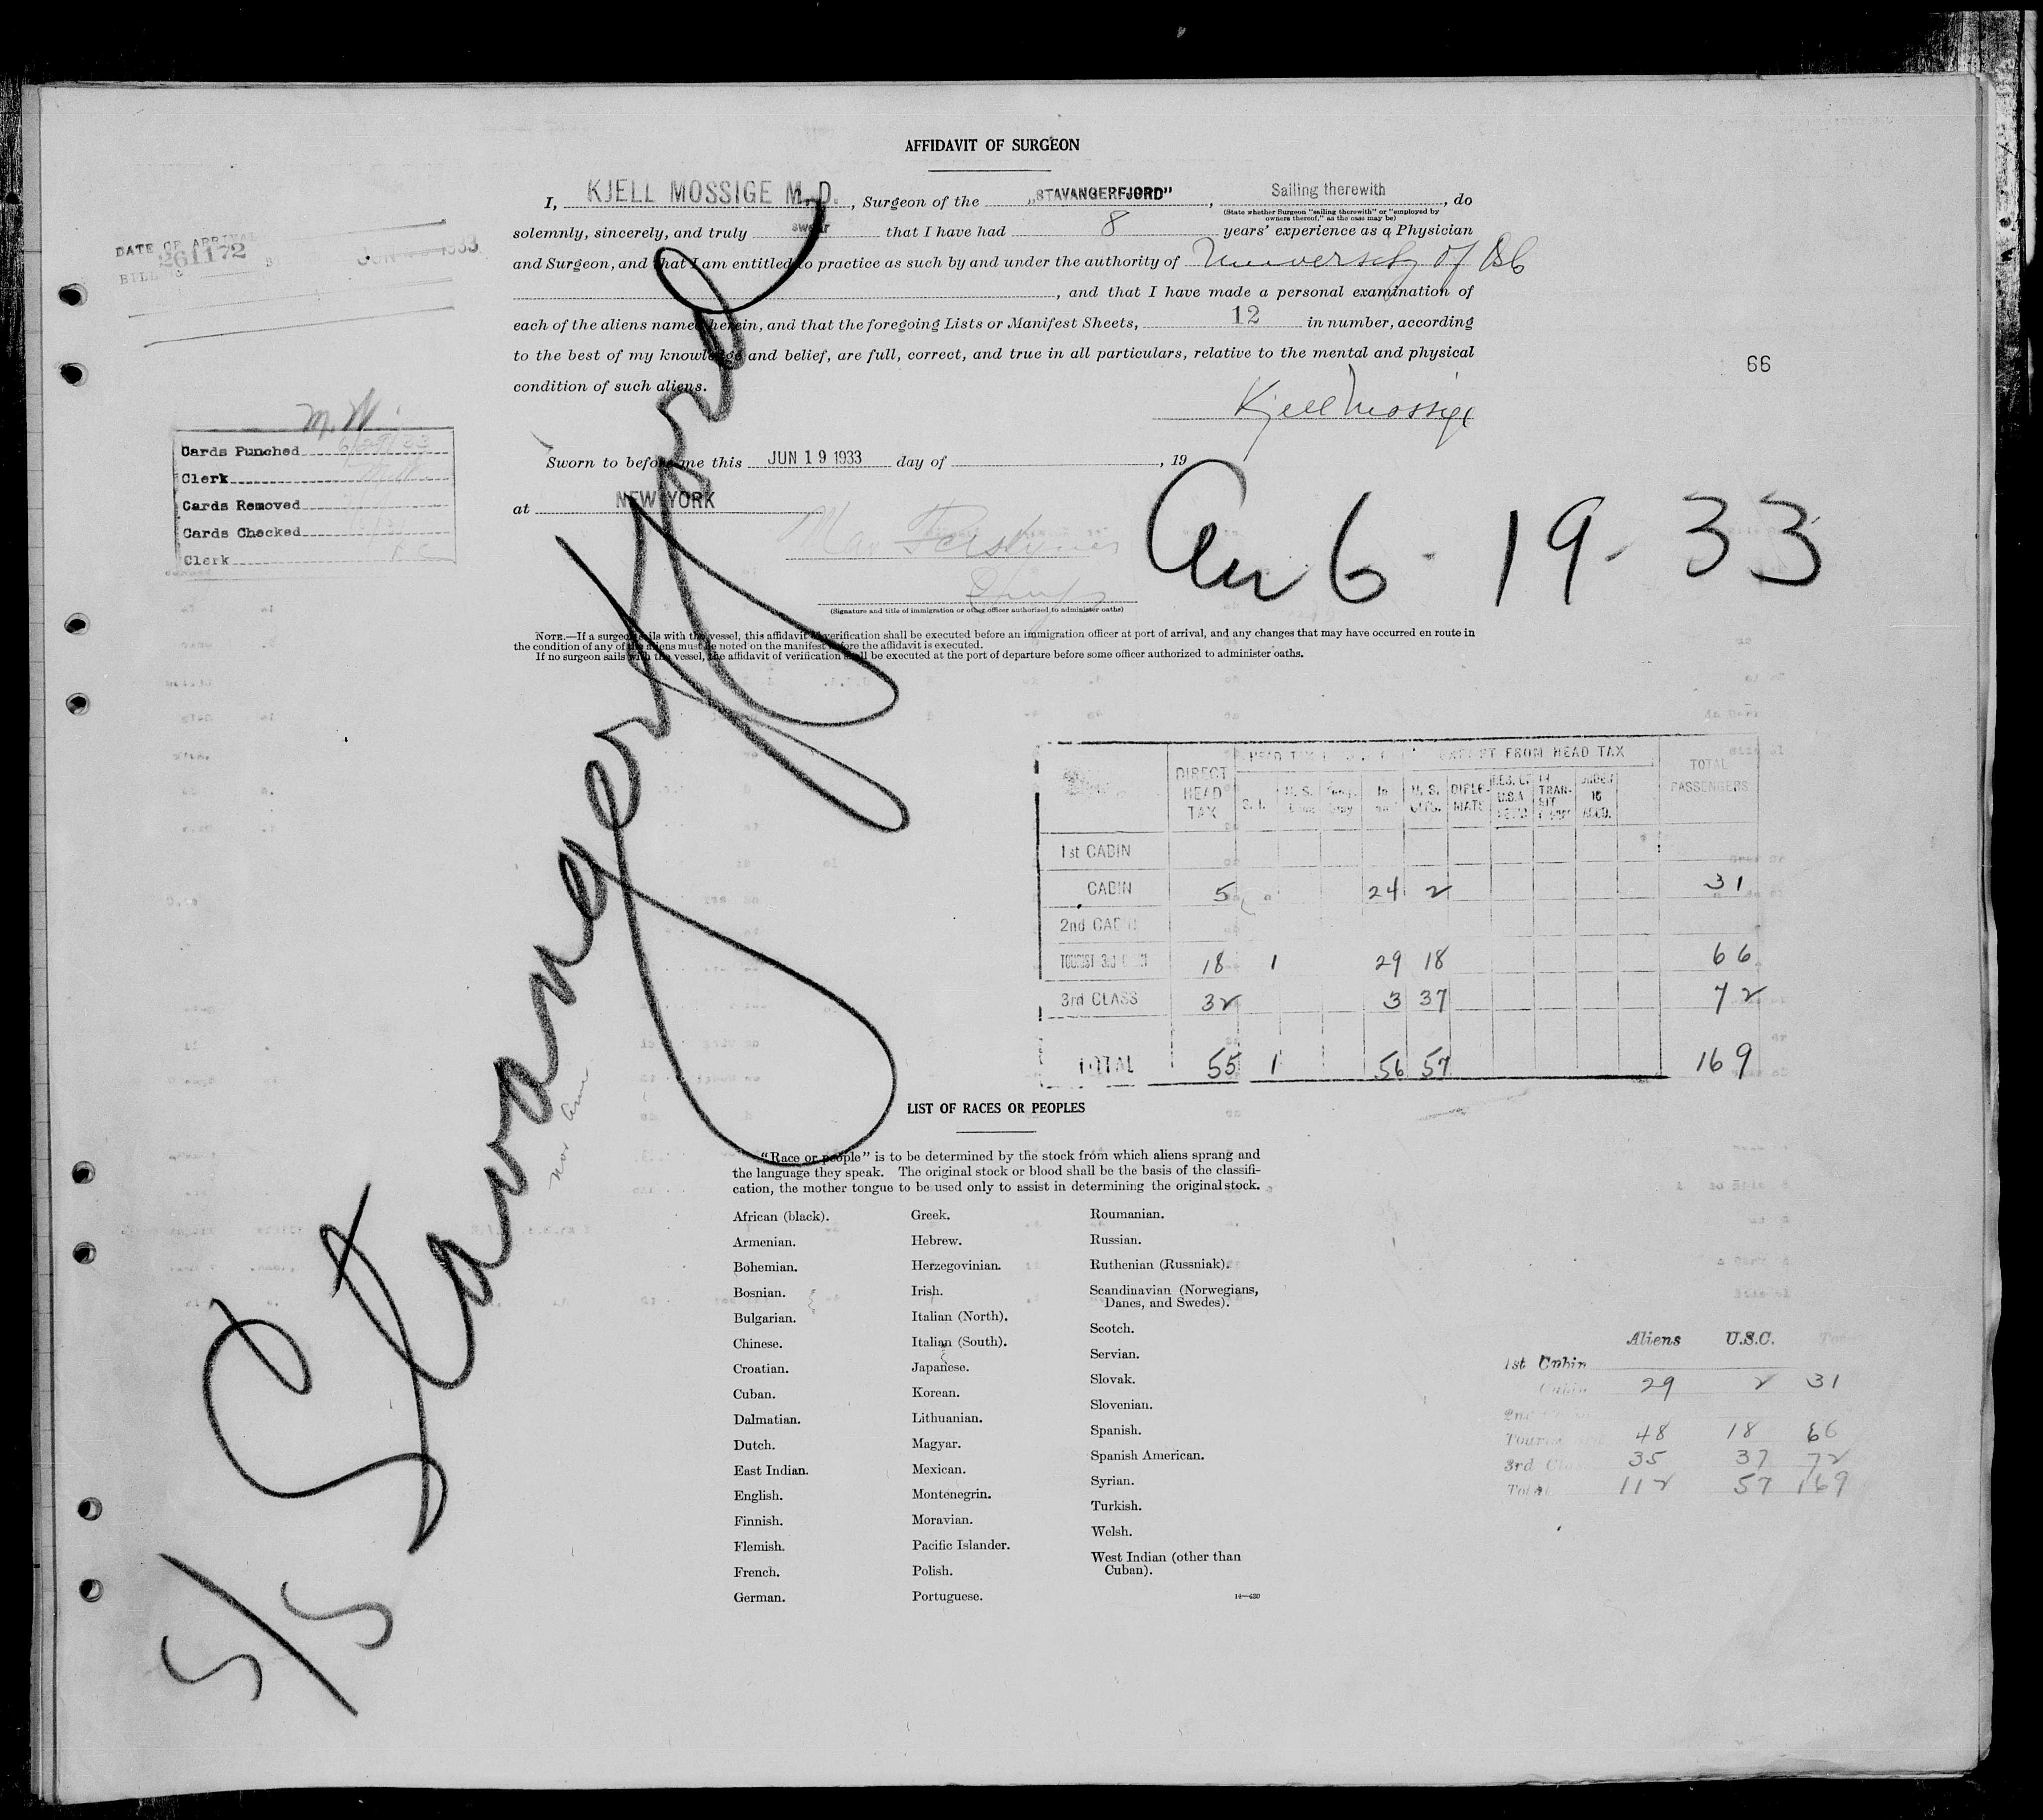 AFFIDAVIT OF SURGEON
I, KJELL MOSSIGE M.D., Surgeon of the „STAVANGERFJORD", Sailing therewith, do
(State whether Surgeon "sailing therewith" or "employed by owners thereof," as the case may be)
solemnly, sincerely, and truly swear that I have had 8 years' experience as a Physician
and Surgeon, and that I am entitled to practice as such by and under the authority of University of
, and that I have made a personal examination of
each of the aliens named herein, and that the foregoing Lists or Manifest Sheets, 12 in number, according
to the best of my knowledge and belief, are full, correct, and true in all particulars, relative to the mental and physical
condition of such aliens.
Kjell Mossige
66
DATE OF ARRIVAL JUN 1933
261172
M.W.
Cards Punched 6/29/33
Clerk
Cards Removed
Cards Checked
Clerk
Sworn to before me this JUN 19 1933 day of , 19
at NEW YORK
Arr 6-19-33
(Signature and title of immigration or other officer authorized to administer oaths)
NOTE.—If a surgeon sails with the vessel, this affidavit of verification shall be executed before an immigration officer at port of arrival, and any changes that may have occurred en route in
the condition of any of the aliens must be noted on the manifest before the affidavit is executed.
If no surgeon sails with the vessel, the affidavit of verification shall be executed at the port of departure before some officer authorized to administer oaths.
S/S Stavangerfjord
DIRECT HEAD TAX
EXEMPT FROM HEAD TAX
TOTAL PASSENGERS
1st CABIN
CABIN 5 24 2 31
2nd CABIN
TOURIST 3rd CABIN 18 1 29 18 66
3rd CLASS 32 3 37 72
TOTAL 55 1 56 57 169
LIST OF RACES OR PEOPLES
"Race or people" is to be determined by the stock from which aliens sprang and
the language they speak. The original stock or blood shall be the basis of the classifi-
cation, the mother tongue to be used only to assist in determining the original stock.
African (black).
Armenian.
Bohemian.
Bosnian.
Bulgarian.
Chinese.
Croatian.
Cuban.
Dalmatian.
Dutch.
East Indian.
English.
Finnish.
Flemish.
French.
German.
Greek.
Hebrew.
Herzegovinian.
Irish.
Italian (North).
Italian (South).
Japanese.
Korean.
Lithuanian.
Magyar.
Mexican.
Montenegrin.
Moravian.
Pacific Islander.
Polish.
Portuguese.
Roumanian.
Russian.
Ruthenian (Russniak).
Scandinavian (Norwegians,
Danes, and Swedes).
Scotch.
Servian.
Slovak.
Slovenian.
Spanish.
Spanish American.
Syrian.
Turkish.
Welsh.
West Indian (other than
Cuban).
Aliens U.S.C.
1st Cabin
Cabin 29 2 31
2nd
48 18 66
3rd 35 37 72
Total 112 57 169